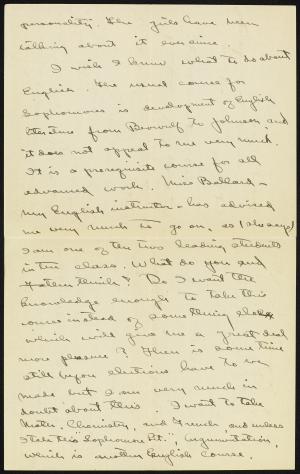 personality. The girls have been
talking about it ever since.
I wish I knew what to do about
English. The usual course for
Sophomores is development of English
literature from Beowulf to Johnson and
it does not appeal to me very much.
It is a prerequisite course for all
advanced work. Miss Ballard -
my English instructor - has advised
me very much to go on, as (she says)
I am one of ten two leading students
in the class. What do you and
Father think? Do I want the
knowledge enough to take this
course instead of something else
which will give me a great deal
more pleasure? There is some time
still before elections have to be
made but I am very much in
doubt about this. I want to take
Math, Chemistry, and French, and unless
I take this Sophomore Lit., Argumentation,
which is another English course.